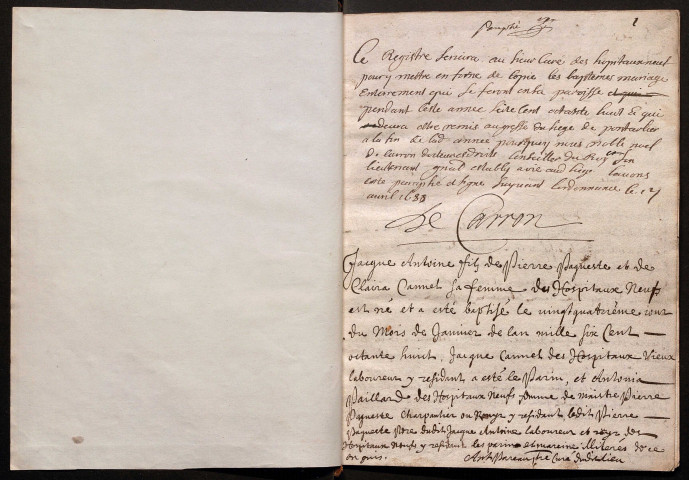 1
Ce Registre servira au sieur Curé des hopitaux neuf
pour y mettre en forme de copie les baptemes mariage
Enterrement qui se feront en la paroisse et qui
pendant cette annee seize Cent octante huit Et qui
devera estre remis au greffe du siege de pontarlier
a la fin de lad annee pourquoy nous noble
De Carron Conseiller du Roy Son
lieutenant gnal estably avie aud siege l'avons
cote paraphé et signe suyvant l'ordonnance le 17
avril 1688
De Carron
Jacque Antoine filz de Pierre Paqueste et de
Claira Cannet sa femme des Hospitaux Neufs
est né et a esté baptisé le vingtquatrème jour
du Mois de Janvier de lan mille six Cent
octante huit, Jacque Cannet des Hospitaux Vieux
laboureur y residant a esté le Parin, et Antonia
Paillard des Hospitaux Neufs femme de maistre Pierre
Paqueste Charpantier ou y residant ledit Pierre
Paqueste Père dudit Jacque Antoine laboureur et des
Hospitaux neufs y residant les parin et mareine illiterés de ce
enquis.
Ant. ptre Curé dudit lieu